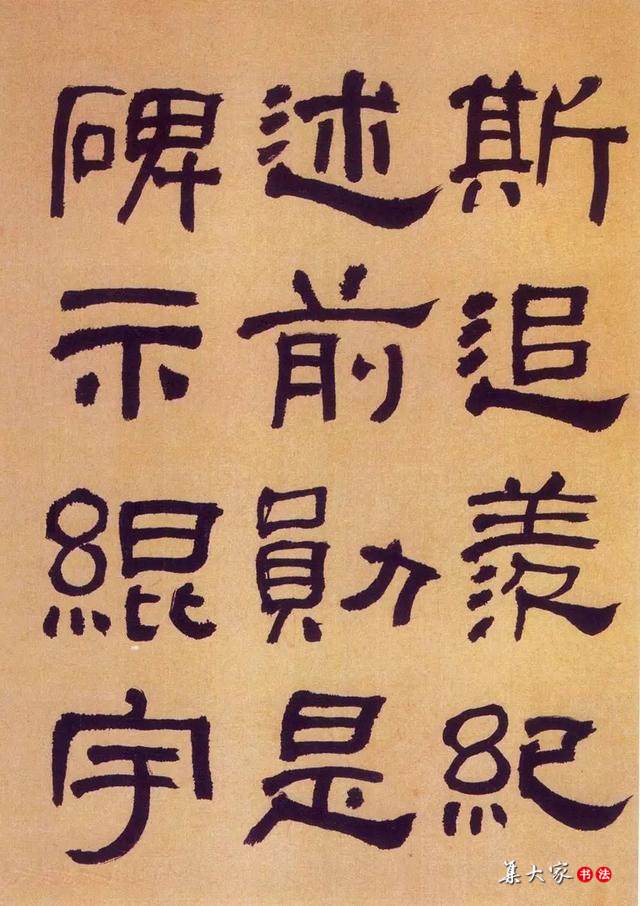 斯追羨紀
述前勛是
碑示緄宇
集大家书法